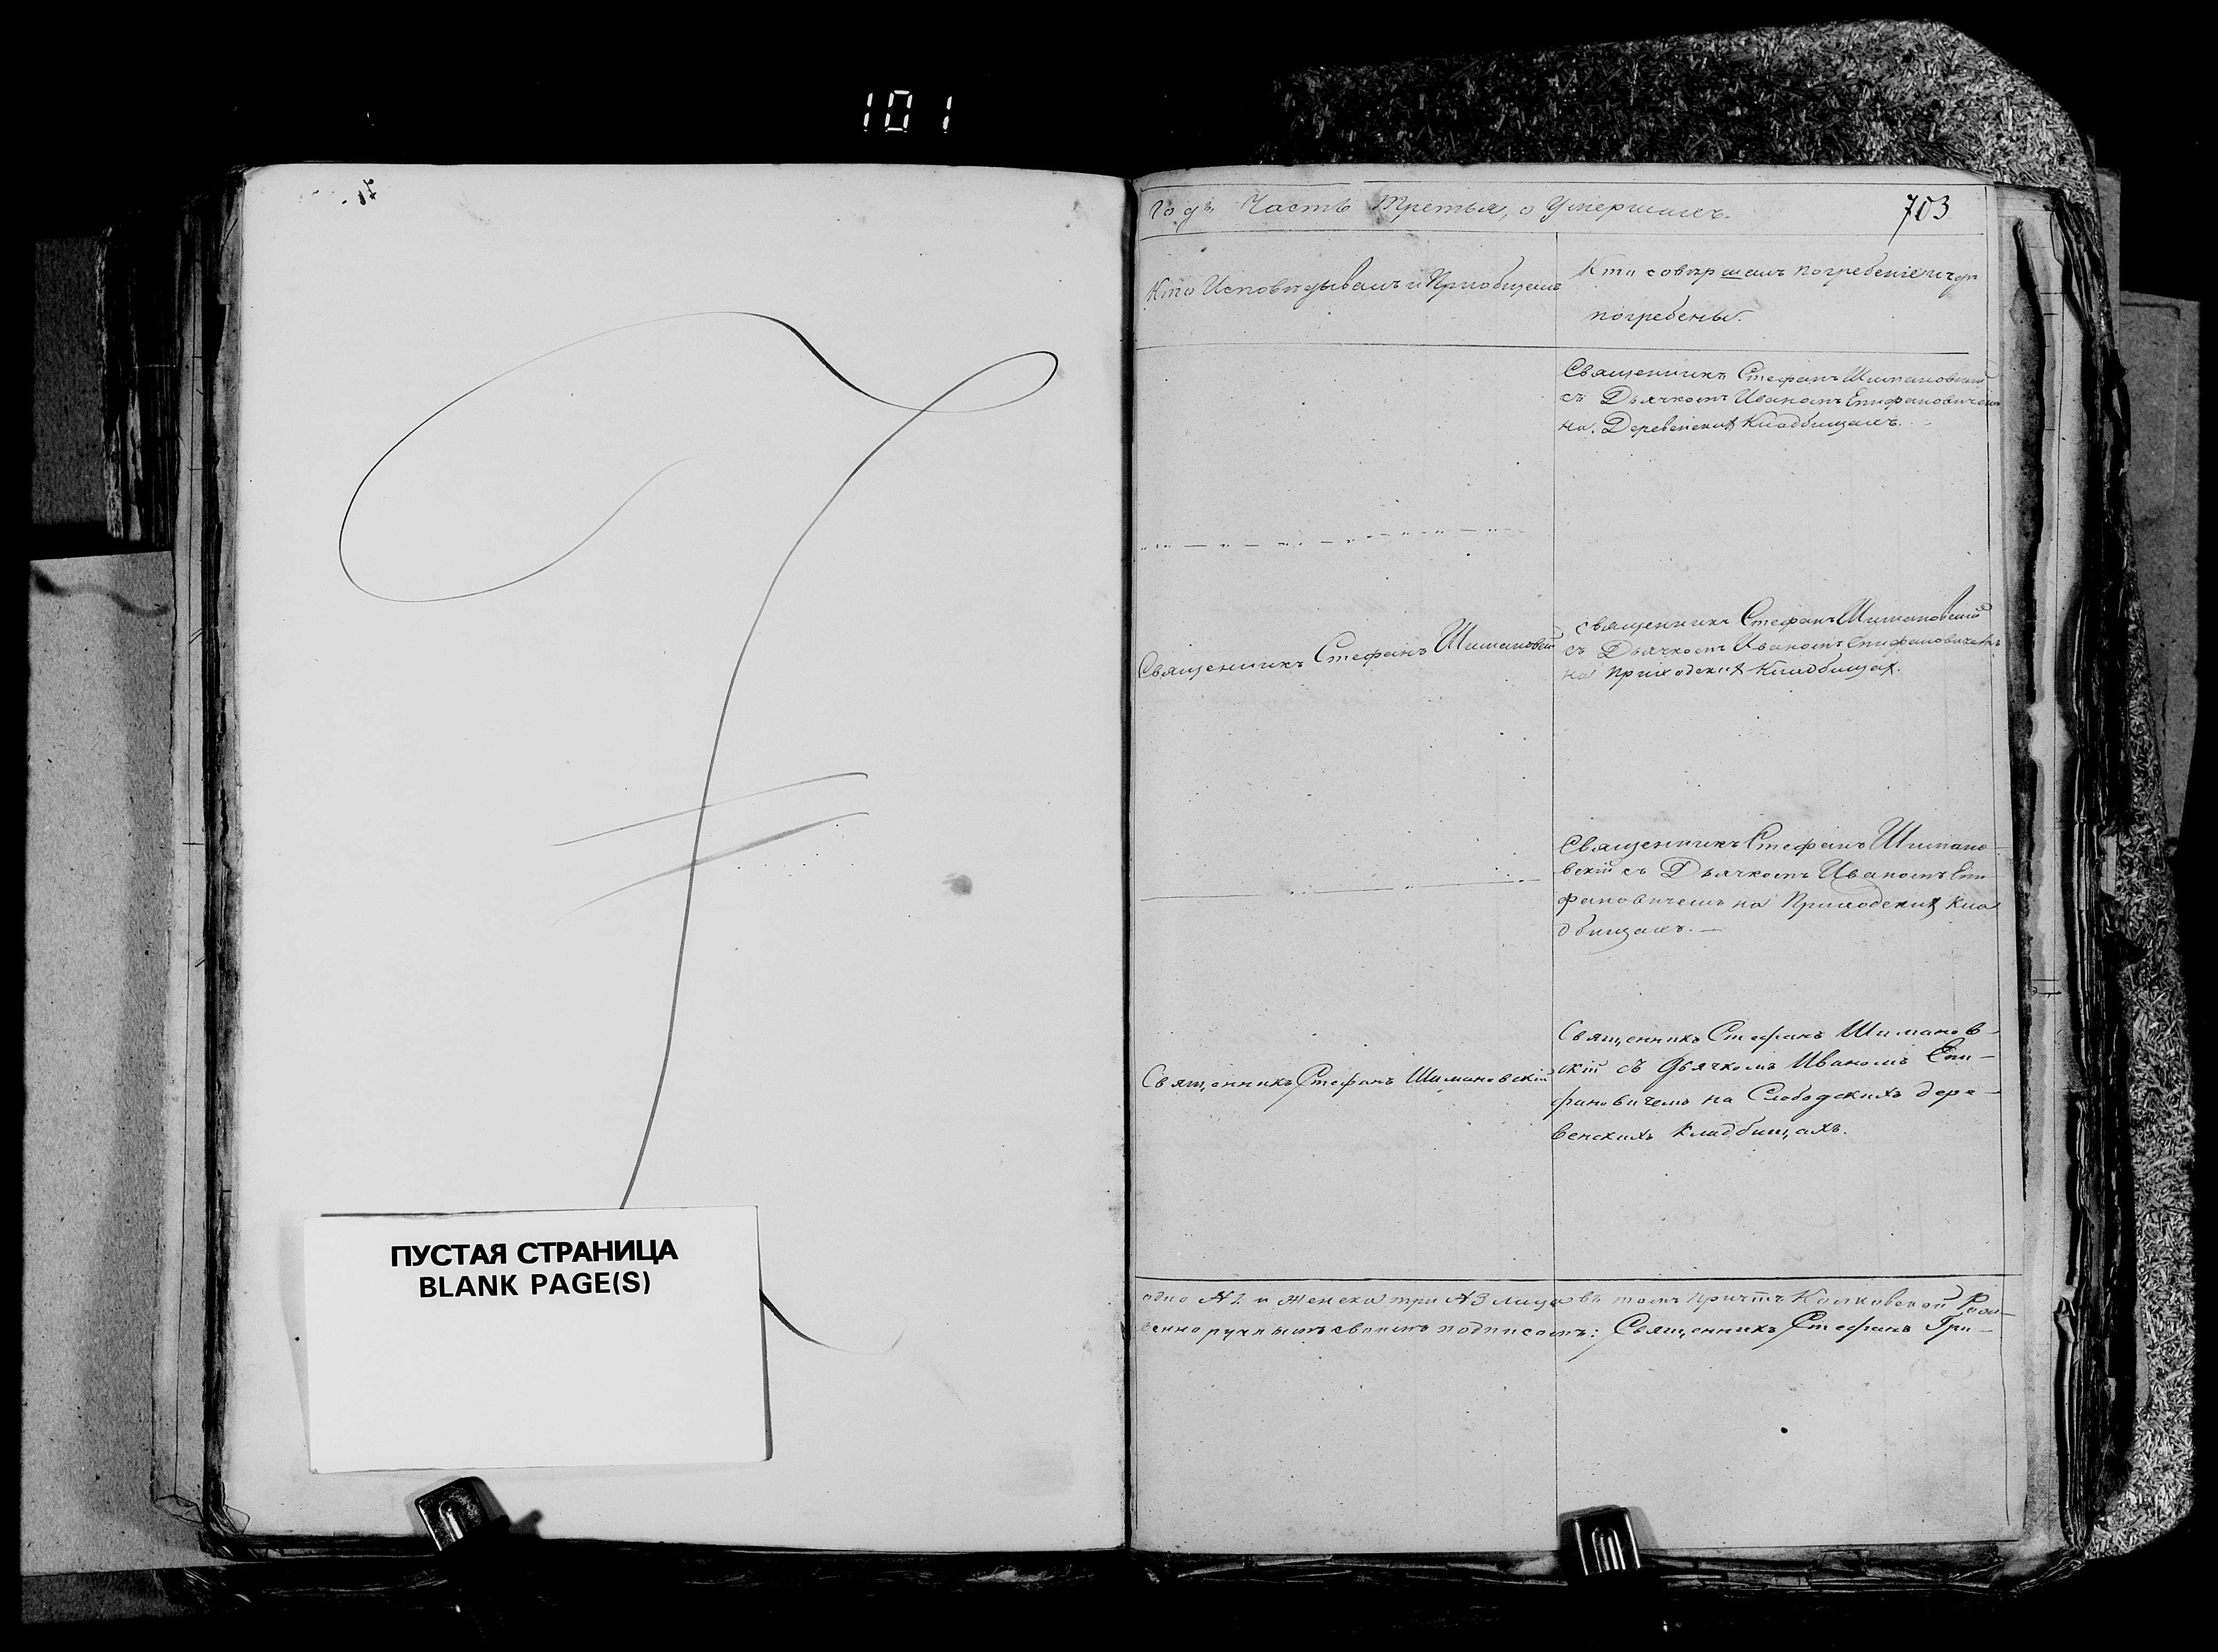 101
ПУСТАЯ СТРАНИЦА
BLANK PAGE(S)
Годъ, Часть Третья, о Умершихъ.
703
Кто Исповѣдывалъ и Приобщалъ
Кто совѣршалъ погребеніе и гдѣ
погребены.
Священникъ Стефанъ Шимановскій
съ Дьячкомъ Иваномъ Епифановичемъ
на Деревенских Кладбищахъ.
Священникъ Стефанъ Шимановскій
Священникъ Стефанъ Шимановскій
съ Дьячкомъ Иваномъ Епифановичемъ
на приходских Кладбищах.
Священникъ Стефанъ Шимано-
вскій съ Дьячкомъ Иваномъ Епи
фановичемъ на Приходских Кла
дбищахъ. —
Священникъ Стефанъ Шимановскій
Священникъ Стефанъ Шиманов-
скій съ Дьячкомъ Иваномъ Епи-
фановичемъ на Слободскихъ дере-
венскихъ Кладбищахъ.
одно и женска три №3 лица въ томъ причтъ
своимъ подписомъ: Священникъ Стефанъ Гри-